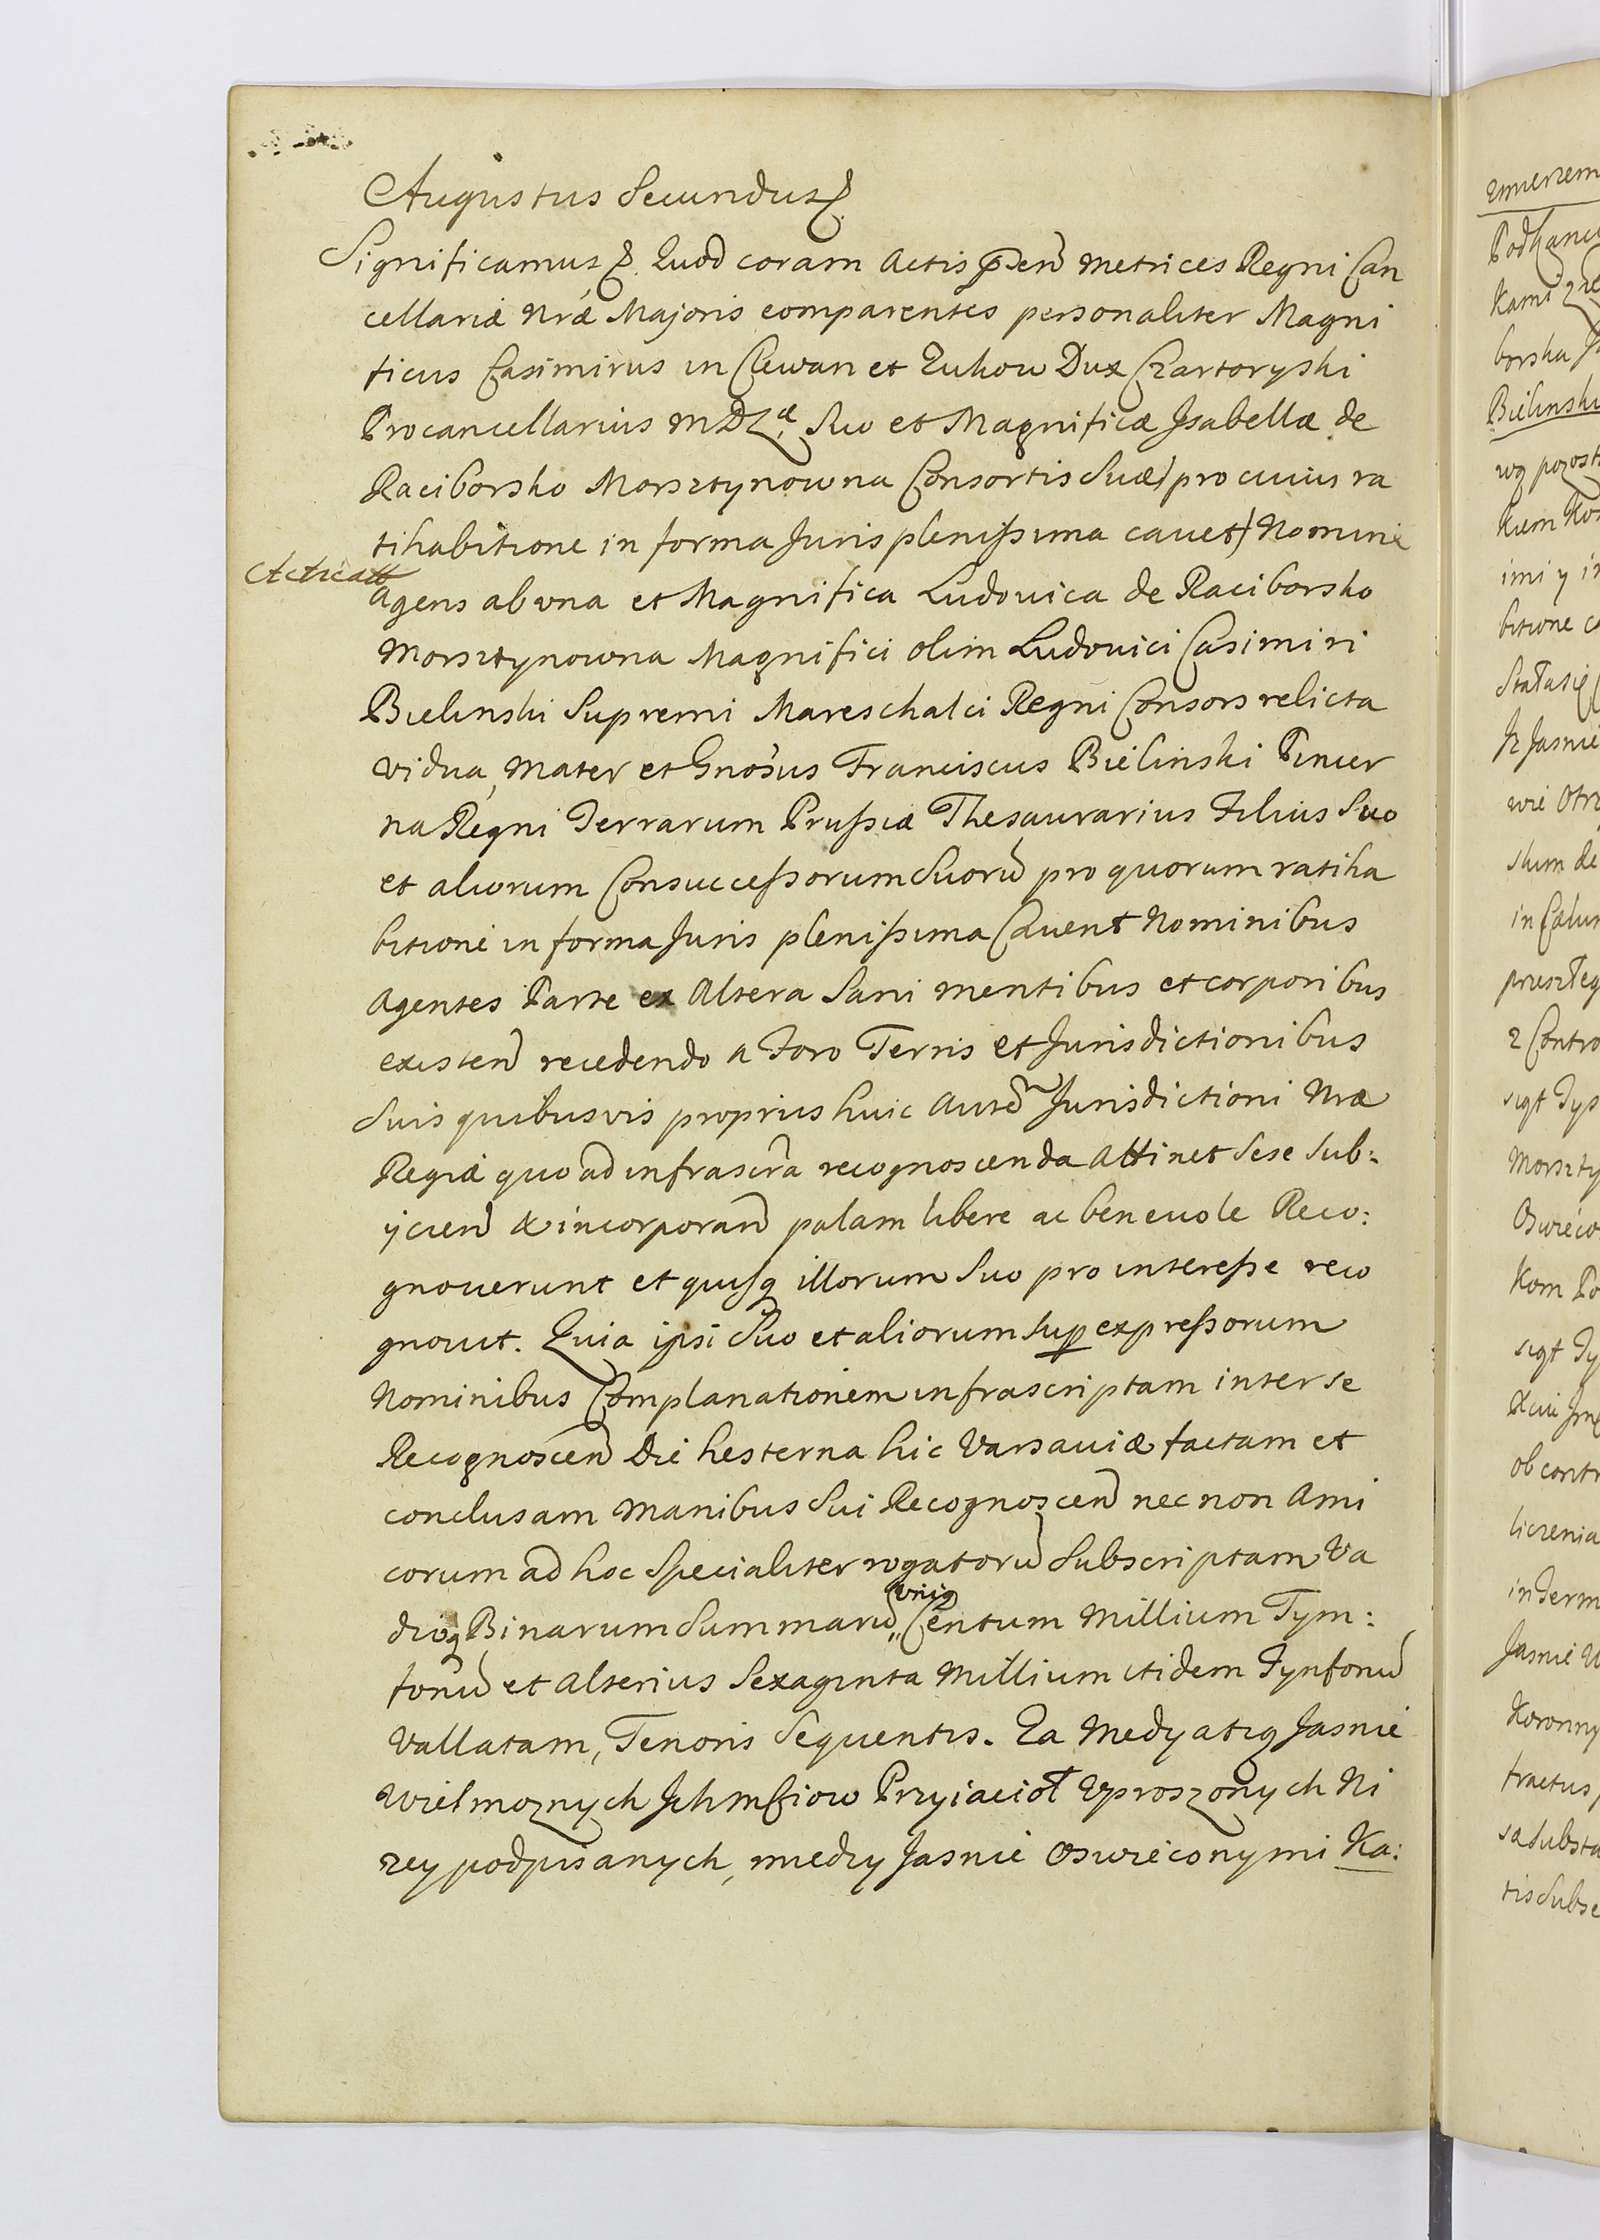 Augustus Secundus
Significamus Quod coram Actis pnd Metrices Regni Can
cellariæ Nræ Majoris comparentes personaliter Magni
ficus Casimirus in Clewan et Zukow Dux Czartoryski
Procancellarius MDL Suo et Magnificæ Isabellæ de
Raciborsko Morsztynowna Consortis Suæ) pro cuius ra
tihabitione in forma Juris plenissima cauet) Nomine
Agens ab vna et Magnifica Ludouica de Raciborsko
Morsztynowna Magnifici olim Ludouici Casimiri
Bielinski Supremi Mareschalci Regni Consors relicta
vidua, Mater et Gnosus Franciscus Bielinski Pincer
na Regni Terrarum Prussiæ Thesaurarius Filius Suo
et aliorum Consuccessorum Suorũ pro quorum ratiha
bitione in forma Juris plenissima Cauent Nominibus
Agentes Parte ex Altera Sani mentibus et corporibus
existeñ recedendo a Foro Terris et Jurisdictionibus
Suis quibusvis proprius huic Autẽ Jurisdictioni Nræ
Regiæ quo ad infrascra recognoscenda Attinet Sese Sub:
ijcieñ & incorporañ palam libere ac beneuole Reco:
gnouerunt et quisq illorum Suo pro interesse reco
gnouit. Quia ipsi Suo et aliorum sup expressorum
Nominibus Complanationem infrascriptam inter se
Recognosceñ Die hesterna hic Varsauiæ factam et
conclusam Manibus Sui Recognosceñ nec non Ami
corum ad hoc Specialiter rogatorũ Subscriptam Va
dioq Binarum Summarũ Vniq Centum Millium Tym:
fonũ et alterius Sexaginta Millium itidem Tynfonũ
Vallatam, Tenoris Sequentis. Za Medyatią Jasnie
Wielmoznych Ichmściow Przyiacioł Vproszonych Ni
zey podpisanych, miedzy Jasnie Oswieconymi Ka: